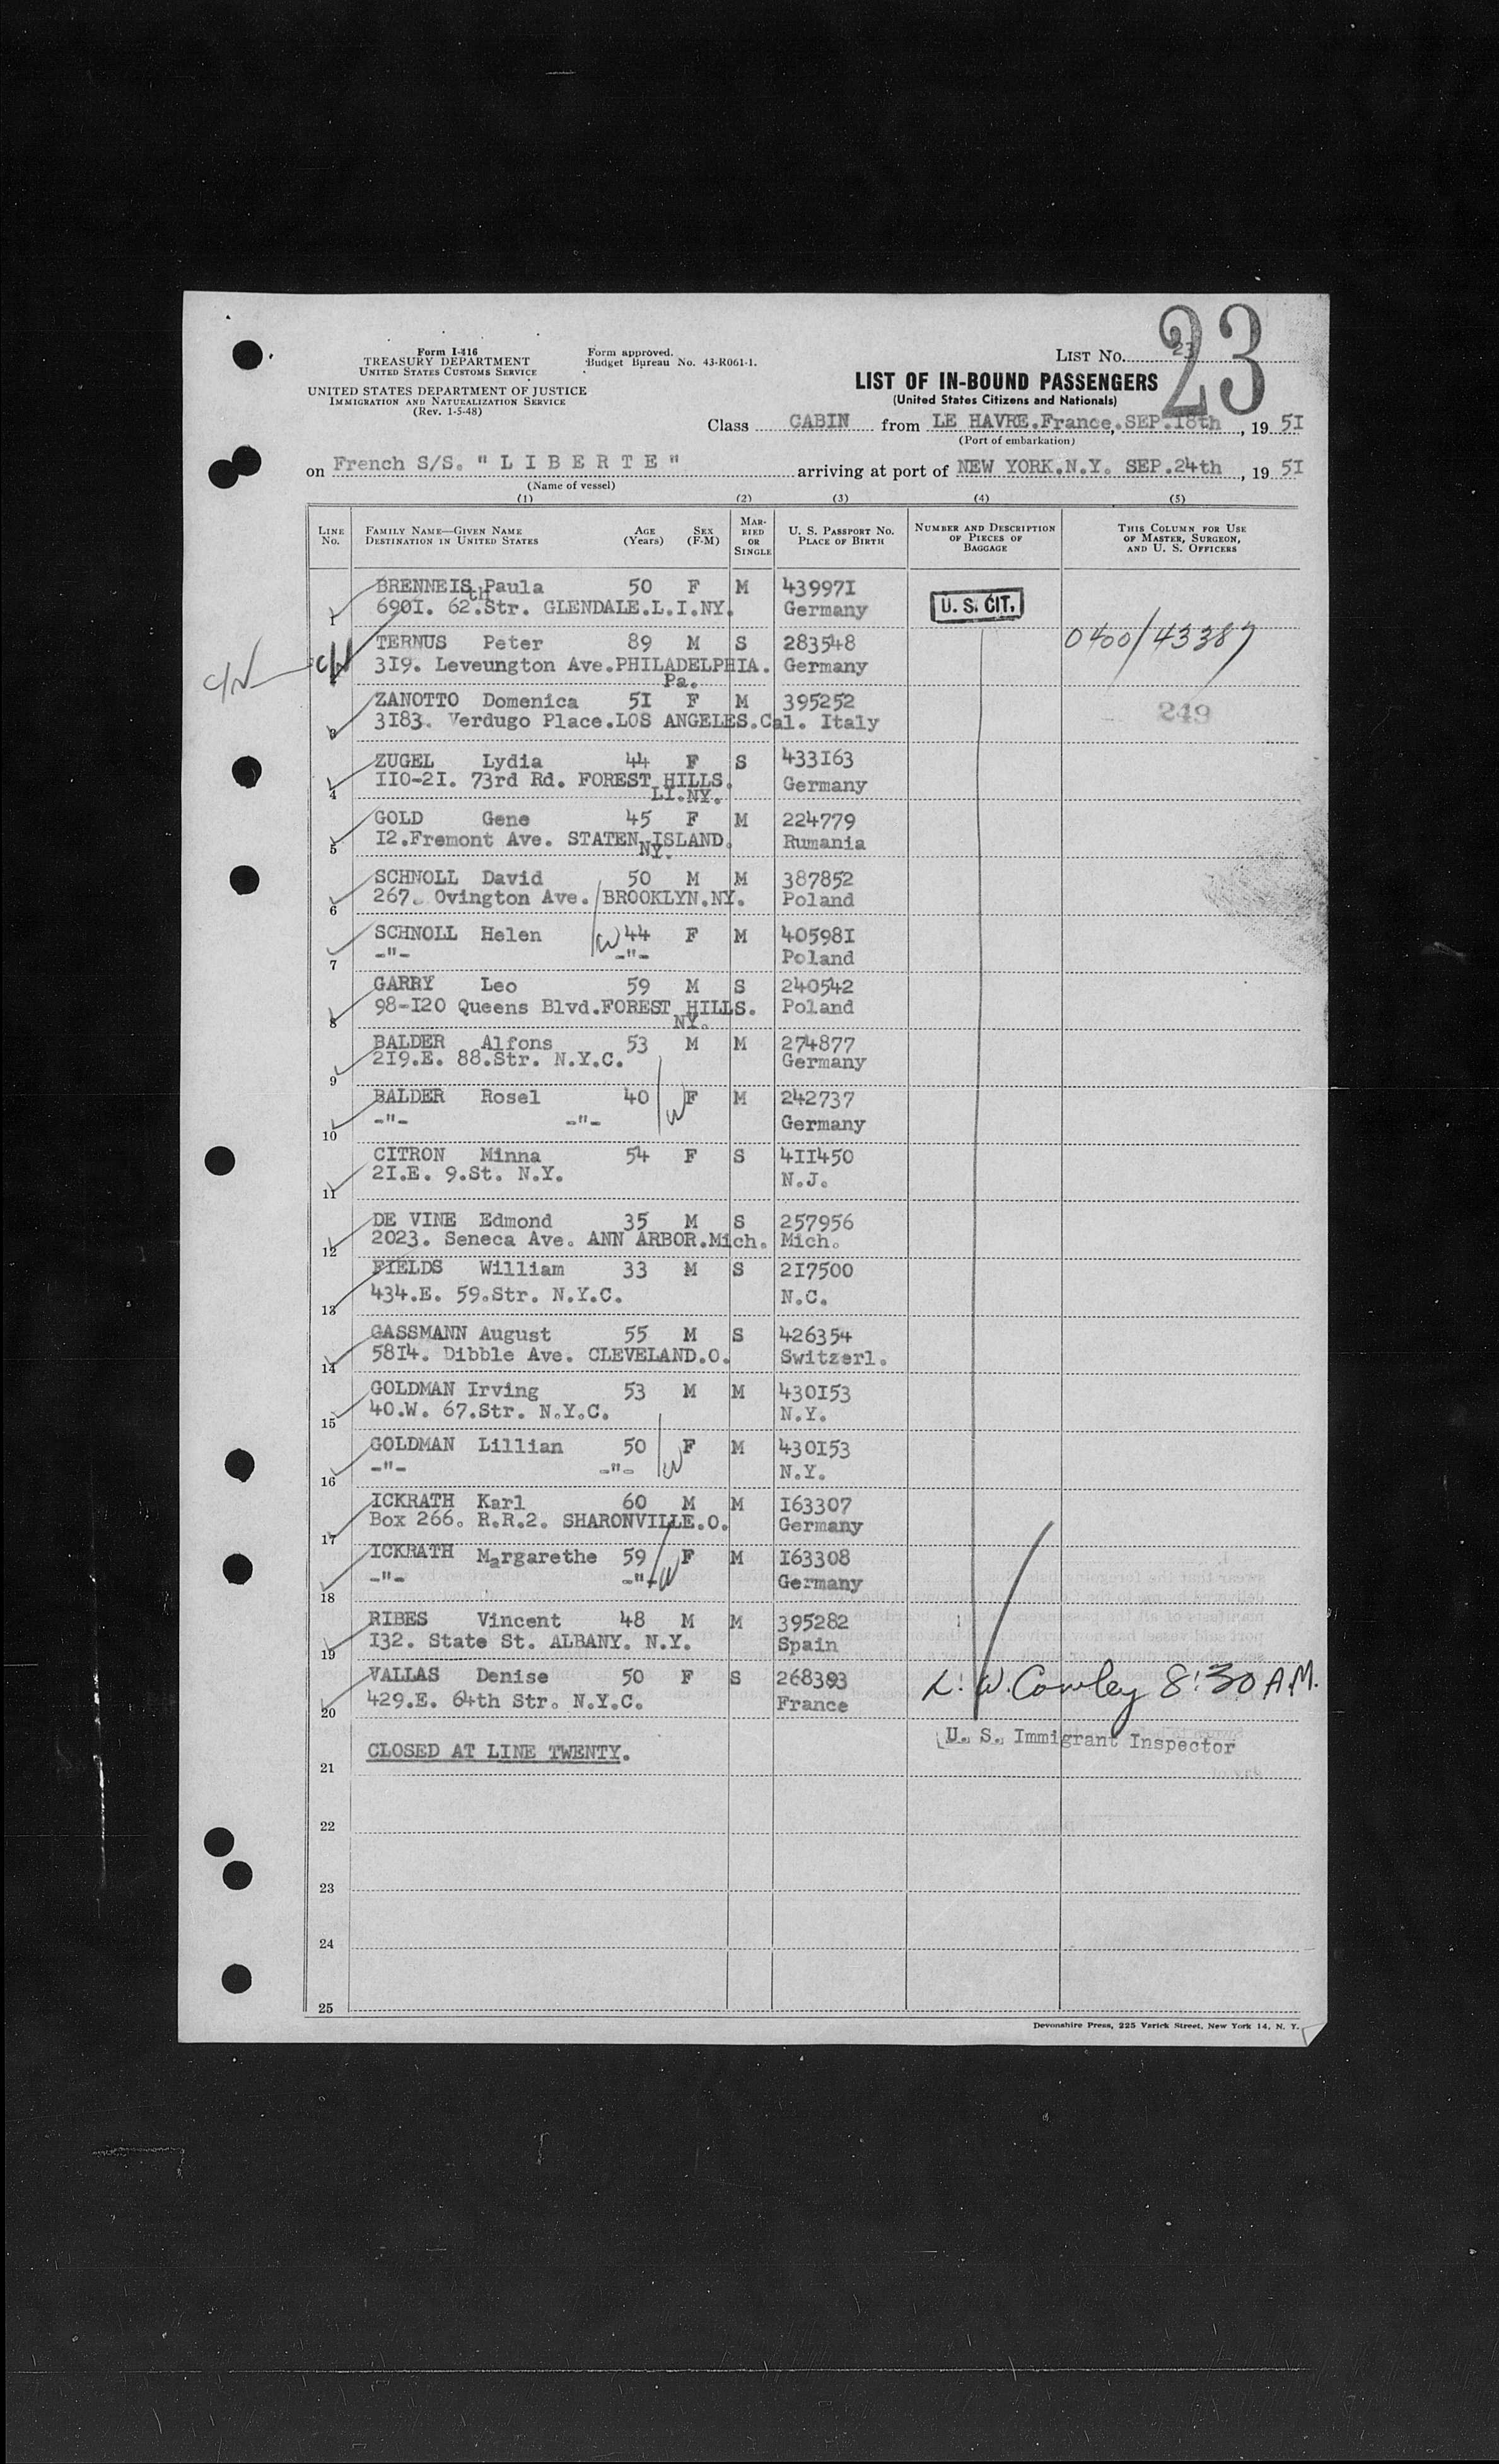 23
Form I-416
TREASURY DEPARTMENT
UNITED STATES CUSTOMS SERVICE
UNITED STATES DEPARTMENT OF JUSTICE
IMMIGRATION AND NATURALIZATION SERVICE
(Rev. 1-5-48)
Form approved.
Budget Bureau No. 43-R061-1.
LIST NO. 23
LIST OF IN-BOUND PASSENGERS
(United States Citizens and Nationals)
Class CABIN from LE HAVRE.France, SEP.18th, 19 51
(Port of embarkation)
on French S/S. " L I B E R T E " arriving at port of NEW YORK.N.Y. SEP.24th, 19 51
(Name of vessel)
(1) (2) (3) (4) (5)
LINE NO. FAMILY NAME—GIVEN NAME DESTINATION IN UNITED STATES AGE (Years) SEX (F-M) MARRIED OR SINGLE U. S. PASSPORT NO. PLACE OF BIRTH NUMBER AND DESCRIPTION OF PIECES OF BAGGAGE THIS COLUMN FOR USE OF MASTER, SURGEON, AND U. S. OFFICERS
BRENNEIS Paula 50 F M 439971
1 6901. 62th.Str. GLENDALE.L.I.NY. Germany U. S. CIT.
TERNUS Peter 89 M S 283548 0400/43387
c/N c/N 319. Leveungton Ave.PHILADELPHIA. Germany
Pa.
ZANOTTO Domenica 51 F M 395252
3 3183. Verdugo Place.LOS ANGELES.Cal. Italy 249
ZUGEL Lydia 44 F S 433163
4 110-21. 73rd Rd. FOREST HILLS. Germany
LI.NY.
GOLD Gene 45 F M 224779
5 12.Fremont Ave. STATEN ISLAND. Rumania
NY.
SCHNOLL David 50 M M 387852
6 267. Ovington Ave. BROOKLYN.NY. Poland
SCHNOLL Helen W 44 F M 405981
7 -"- -"- Poland
GARRY Leo 59 M S 240542
8 98-120 Queens Blvd.FOREST HILLS. Poland
NY.
BALDER Alfons 53 M M 274877
9 219.E. 88.Str. N.Y.C. Germany
BALDER Rosel 40 W F M 242737
10 -"- -"- Germany
CITRON Minna 54 F S 411450
11 21.E. 9.St. N.Y. N.J.
DE VINE Edmond 35 M S 257956
12 2023. Seneca Ave. ANN ARBOR.Mich. Mich.
FIELDS William 33 M S 217500
13 434.E. 59.Str. N.Y.C. N.C.
GASSMANN August 55 M S 426354
14 5814. Dibble Ave. CLEVELAND.O. Switzerl.
GOLDMAN Irving 53 M M 430153
15 40.W. 67.Str. N.Y.C. N.Y.
GOLDMAN Lillian 50 W F M 430153
16 -"- -"- N.Y.
ICKRATH Karl 60 M M 163307
17 Box 266. R.R.2. SHARONVILLE.O. Germany
ICKRATH Margarethe 59 W F M 163308
18 -"- -"- Germany
RIBES Vincent 48 M M 395282
19 132. State St. ALBANY. N.Y. Spain
VALLAS Denise 50 F S 268393
20 429.E. 64th Str. N.Y.C. France L. W. Cowley 8:30 A.M.
U. S. Immigrant Inspector
21 CLOSED AT LINE TWENTY.
22
23
24
25
Devonshire Press, 225 Varick Street, New York 14, N. Y.